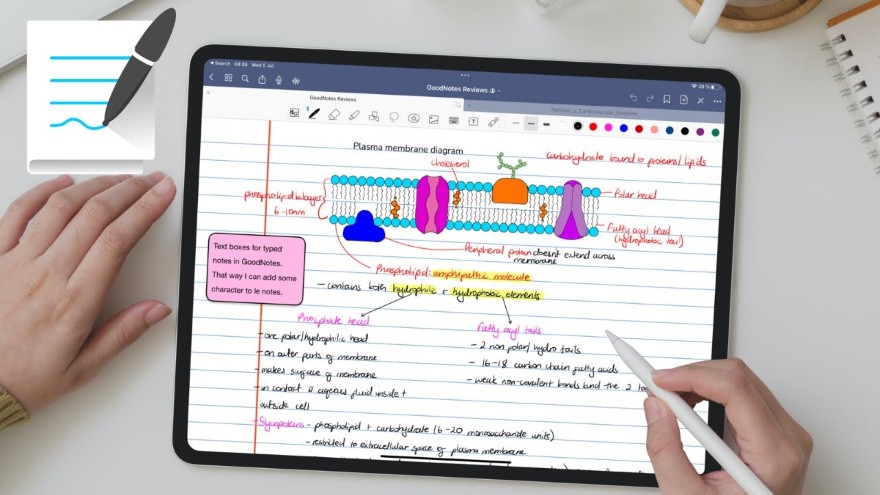 Search 08:08 Wed 5 Jul
GoodNotes Reviews
GoodNotes Reviews
Plasma membrane diagram
cholesterol
carbohydrate bound to proteins/lipids
Polar head
phospholipid bilayer
6-10nm
Fatty acyl head
(hydrophobic tail)
Peripheral protein doesn't extend across
membrane
Phospholipid: amphipathic molecule
Text boxes for typed
notes in GoodNotes.
That way I can add some
character to le notes.
- contains both hydrophilic + hydrophobic elements
Phosphate head
- one polar/hydrophilic head
- on outer parts of membrane
- makes surface of membrane
- in contact aqueous fluid inside +
outside cell
Fatty acyl tails
- 2 non polar/hydro tails
- 16-18 carbon chain fatty acids
- weak non-covalent bonds bind the 2
- phospholipid + carbohydrate (6-20 monosaccharide units)
- restricted to extracellular space of plasma membrane